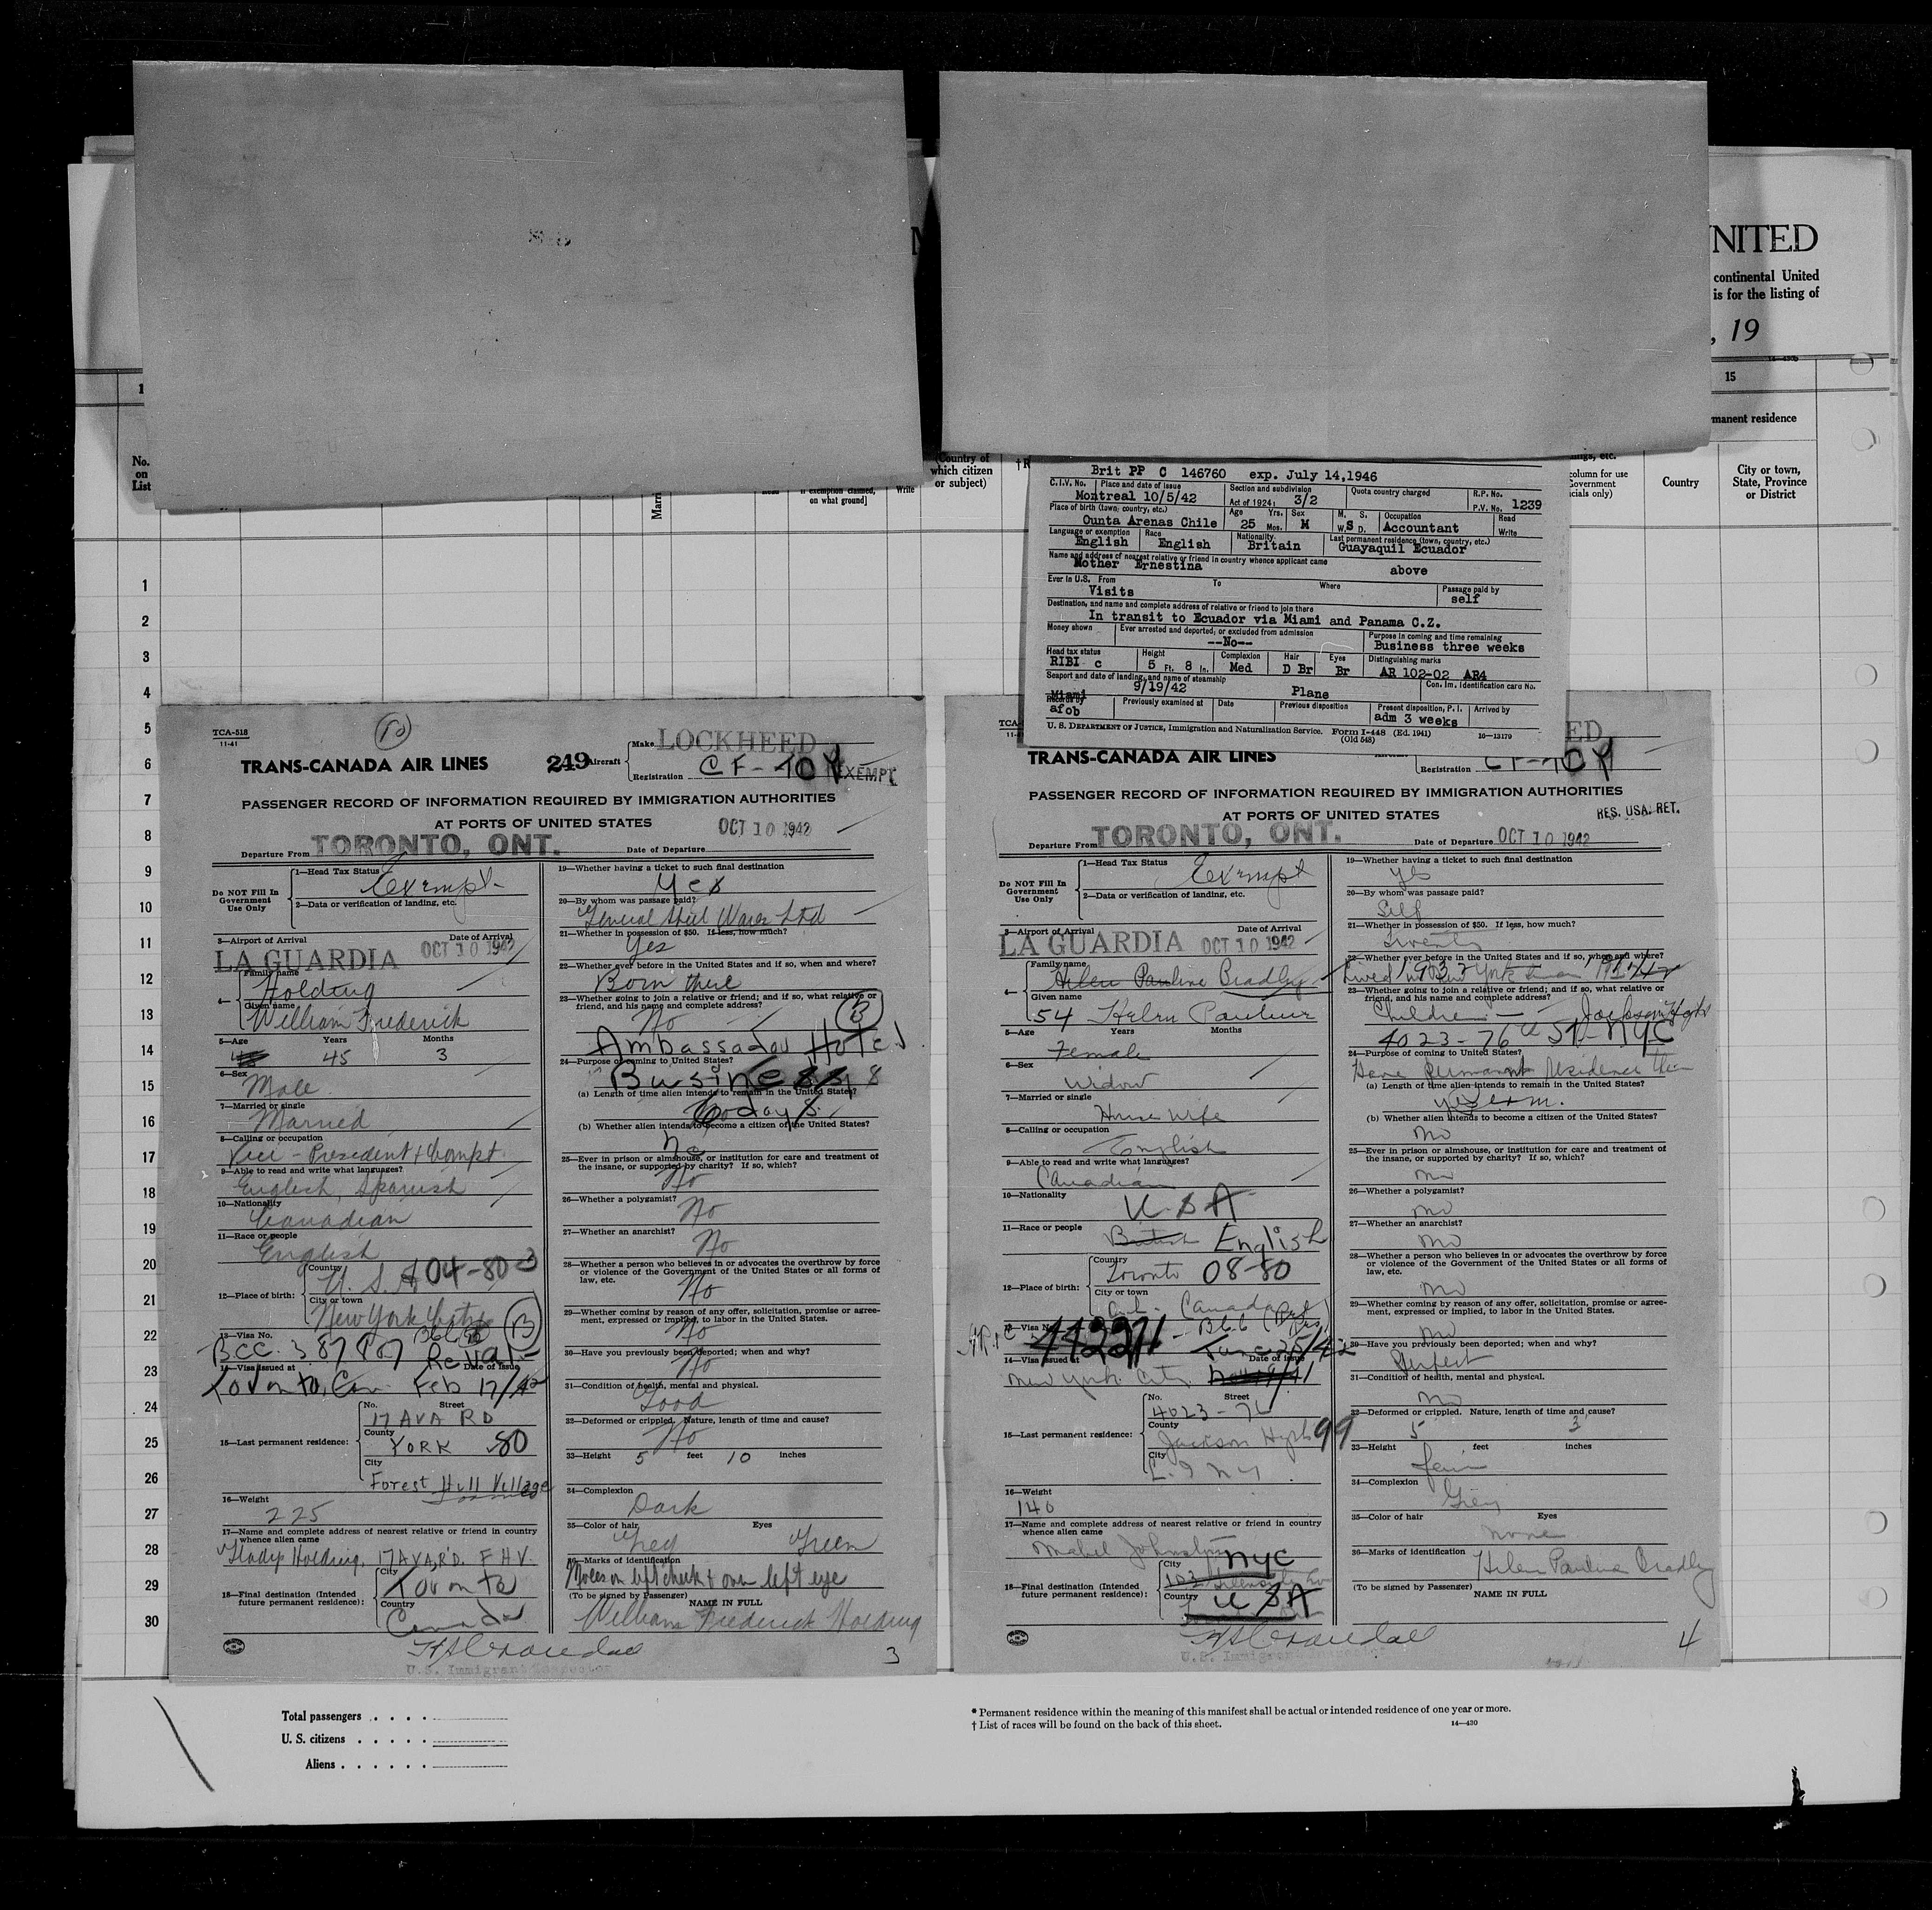 NITED
continental United
is for the listing of
, 19
15
manent residence
No.
on
List
Country of
which citizen
or subject)
column for use
Government
cials only)
Country
City or town,
State, Province
or District
if exemption claimed,
on what ground]
Write
Brit PP C 146760 exp. July 14,1946
C.I.V. No. Place and date of issue Section and subdivision Quota country charged R.P. No.
Montreal 10/5/42 Act of 1924: 3/2 P.V. No. 1239
Place of birth (town, country, etc.) Age Yrs. Sex M. S. Occupation Read
Ounta Arenas Chile 25 Mos. M W.S D. Accountant Write
Language or exemption Race Nationality Last permanent residence (town, country, etc.)
English English Britain Guayaquil Ecuador
Name and address of nearest relative or friend in country whence applicant came
Mother Ernestina above
Ever in U.S. From To Where Passage paid by
Visits self
Destination, and name and complete address of relative or friend to join there
In transit to Ecuador via Miami and Panama C.Z.
Money shown Ever arrested and deported, or excluded from admission Purpose in coming and time remaining
--No-- Business three weeks
Head tax status Height Complexion Hair Eyes Distinguishing marks
RIBI c 5 Ft. 8 In. Med D Br Br AR 102-02 AR4
Seaport and date of landing, and name of steamship Con. Im. Identification card No.
Miami 9/19/42 Plane
Records by Previously examined at Date Previous disposition Present disposition, P. I. Arrived by
afob adm 3 weeks
U. S. DEPARTMENT OF JUSTICE, Immigration and Naturalization Service. Form I-448 (Ed. 1941)
(Old 548) 16-13179
1
2
3
4
5
6
7
8
9
10
11
12
13
14
15
16
17
18
19
20
21
22
23
24
25
26
27
28
29
30
TCA-518
11-41
TRANS-CANADA AIR LINES
249 Aircraft
Make LOCKHEED
Registration CF-TCY EXEMPT
PASSENGER RECORD OF INFORMATION REQUIRED BY IMMIGRATION AUTHORITIES
AT PORTS OF UNITED STATES
Departure From TORONTO, ONT. Date of Departure OCT 10 1942
Do NOT Fill In
Government
Use Only
1—Head Tax Status Exempt
2—Data or verification of landing, etc.
3—Airport of Arrival Date of Arrival
LA GUARDIA OCT 10 1942
4— Family name
Holding
Given name
William Frederick
5—Age Years Months
45 3
6—Sex
Male
7—Married or single
Married
8—Calling or occupation
Vice-President & Compt.
9—Able to read and write what languages?
English, Spanish
10—Nationality
Canadian
11—Race or people
English
12—Place of birth: Country
U. S. A 04-80
City or town
New York City
13—Visa No.
BCC 38787 Reval B
14—Visa Issued at Date of Issue
Toronto, Can Feb 17/42
15—Last permanent residence: No. Street
17 AVA RD
County
YORK 80
City
Forest Hill Village
16—Weight
225
17—Name and complete address of nearest relative or friend in country
whence alien came
Gladys Holding, 17 AVA, R'D. F H V.
18—Final destination (Intended
future permanent residence): City
Toronto
Country
Canada
U.S. Immigrant Inspector
19—Whether having a ticket to such final destination
Yes
20—By whom was passage paid?
General Steel Wares Ltd
21—Whether in possession of $50. If less, how much?
Yes
22—Whether ever before in the United States and if so, when and where?
Born there
23—Whether going to join a relative or friend; and if so, what relative or
friend, and his name and complete address?
No
B
Ambassador Hotel
24—Purpose of coming to United States?
Business
(a) Length of time alien intends to remain in the United States?
days
(b) Whether alien intends to become a citizen of the United States?
No
25—Ever in prison or almshouse, or institution for care and treatment of
the insane, or supported by charity? If so, which?
No
26—Whether a polygamist?
No
27—Whether an anarchist?
No
28—Whether a person who believes in or advocates the overthrow by force
or violence of the Government of the United States or all forms of
law, etc.
No
29—Whether coming by reason of any offer, solicitation, promise or agree-
ment, expressed or implied, to labor in the United States.
No
30—Have you previously been deported; when and why?
No
31—Condition of health, mental and physical.
Good
32—Deformed or crippled. Nature, length of time and cause?
No
33—Height 5 feet 10 inches
34—Complexion
Dark
35—Color of hair Eyes
Grey Green
36—Marks of identification
Moles on left cheek & over left eye
(To be signed by Passenger) NAME IN FULL
William Frederick Holding
3
TRANS-CANADA AIR LINES
Registration CF-TCY
PASSENGER RECORD OF INFORMATION REQUIRED BY IMMIGRATION AUTHORITIES
AT PORTS OF UNITED STATES
RES. USA. RET.
Departure From TORONTO, ONT. Date of Departure OCT 10 1942
Do NOT Fill In
Government
Use Only
1—Head Tax Status Exempt
2—Data or verification of landing, etc.
3—Airport of Arrival Date of Arrival
LA GUARDIA OCT 10 1942
4— Family name
Helen Pauline Bradley
Given name
54 Helen Pauline
5—Age Years Months
Female
6—Sex
Widow
7—Married or single
House wife
8—Calling or occupation
English
9—Able to read and write what languages?
Canadian
10—Nationality
U.S.A
11—Race or people
British English
12—Place of birth: Country
Toronto 08-80
City or town
Ont. Canada
13—Visa No.
442271
14—Visa Issued at Date of Issue
New York City June 25/42
15—Last permanent residence: No. Street
4023-76
County
Jackson Hgts 99
City
L. I NY
16—Weight
140
17—Name and complete address of nearest relative or friend in country
whence alien came
Mabel Johnston
18—Final destination (Intended
future permanent residence): City
NYC
Country
USA
U.S. Immigrant
19—Whether having a ticket to such final destination
Yes
20—By whom was passage paid?
Self
21—Whether in possession of $50. If less, how much?
Twenty
22—Whether ever before in the United States and if so, when and where?
Lived in New York
23—Whether going to join a relative or friend; and if so, what relative or
friend, and his name and complete address?
Children — Jackson Hgts
4023-76th St NYC
24—Purpose of coming to United States?
Have permanent residence there
(a) Length of time alien intends to remain in the United States?
(b) Whether alien intends to become a citizen of the United States?
No
25—Ever in prison or almshouse, or institution for care and treatment of
the insane, or supported by charity? If so, which?
No
26—Whether a polygamist?
No
27—Whether an anarchist?
No
28—Whether a person who believes in or advocates the overthrow by force
or violence of the Government of the United States or all forms of
law, etc.
No
29—Whether coming by reason of any offer, solicitation, promise or agree-
ment, expressed or implied, to labor in the United States.
No
30—Have you previously been deported; when and why?
Perfect
31—Condition of health, mental and physical.
No
32—Deformed or crippled. Nature, length of time and cause?
5 3
33—Height feet inches
fair
34—Complexion
Grey
35—Color of hair Eyes
none
36—Marks of identification Helen Pauline Bradley
(To be signed by Passenger) NAME IN FULL
4
Total passengers . . . .
U. S. citizens . . . . .
Aliens . . . . . .
* Permanent residence within the meaning of this manifest shall be actual or intended residence of one year or more.
† List of races will be found on the back of this sheet. 14—430